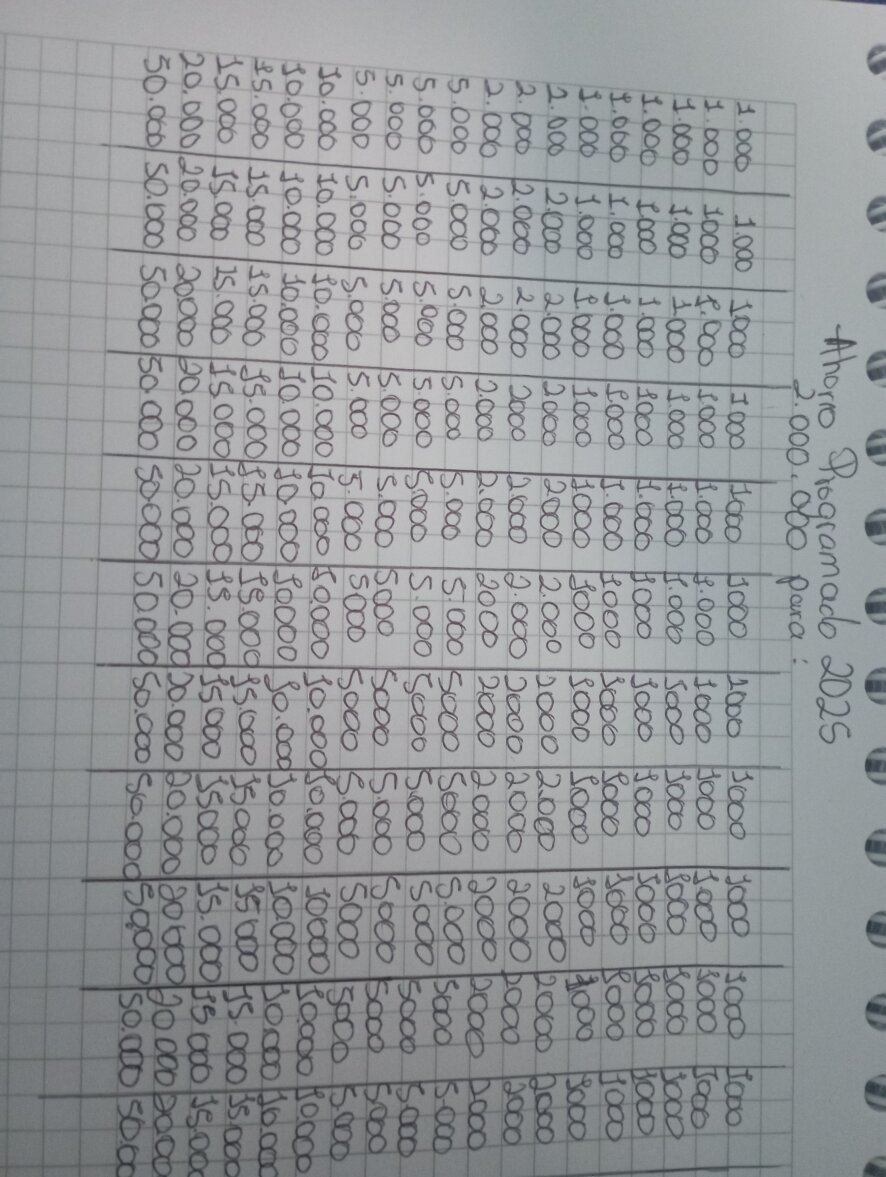 Ahorro Programado 2025
2.000.000 para:
1.000 1.000 1000 1000 1000 1000 1000 1000 1000 1000 1000
1.000 1000 1.000 1.000 1.000 1.000 1000 1000 1.000 1000 1000
1.000 1.000 1.000 1.000 1.000 1.000 1000 1000 1000 1000 1000
1.000 1.000 1.000 1000 1.000 1000 1000 1000 1000 1000 1000
1.000 1.000 1.000 1000 1.000 1000 1000 1000 1000 1000 1000
1.000 1.000 1.000 1000 1000 1000 1000 1000 1000 1000 1000
2.000 2.000 2.000 2000 2000 2.000 2000 2.000 2000 2000 2000
2.000 2.000 2.000 2000 2.000 2.000 2000 2000 2000 2000 2000
2.000 2.000 2.000 2.000 2.000 2000 2000 2000 2000 2000 2000
5.000 5.000 5.000 5.000 5.000 5.000 5000 5000 5.000 5000 5.000
5.000 5.000 5.000 5.000 5.000 5.000 5000 5.000 5000 5000 5.000
5.000 5.000 5.000 5.000 5.000 5000 5000 5.000 5000 5000 5000
5.000 5.000 5.000 5.000 5.000 5000 5000 5.000 5000 5000 5.000
10.000 10.000 10.000 10.000 10.000 10000 10.000 10.000 10000 10000 10.000
10.000 10.000 10.000 10.000 10.000 10.000 10.000 10.000 10000 10.000 10.000
15.000 15.000 15.000 15.000 15.000 15.000 15.000 15.000 15000 15.000 15.000
15.000 15.000 15.000 15.000 15.000 15.000 15000 15000 15.000 15000 15.000
20.000 20.000 20.000 20.000 20.000 20.000 20.000 20.000 20000 20.000 20.000
50.000 50.000 50.000 50.000 50.000 50.000 50.000 50.000 50.000 50.000 50.00